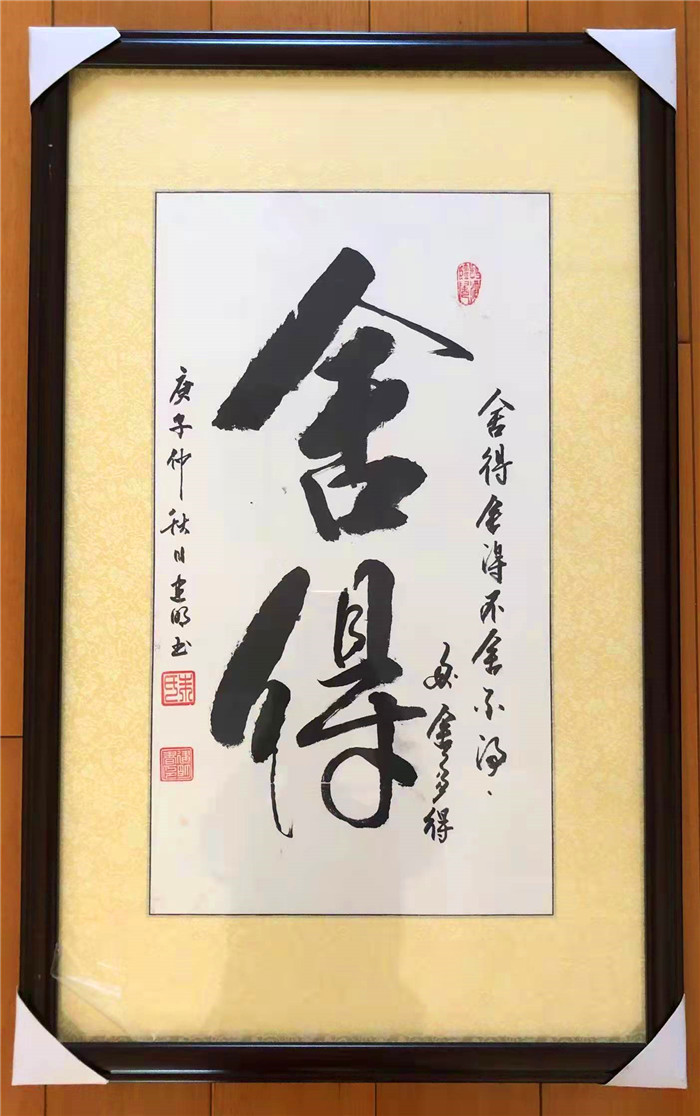 舍得
舍得舍得不舍不得、
多舍多得
庚子仲秋日建明书
朱氏